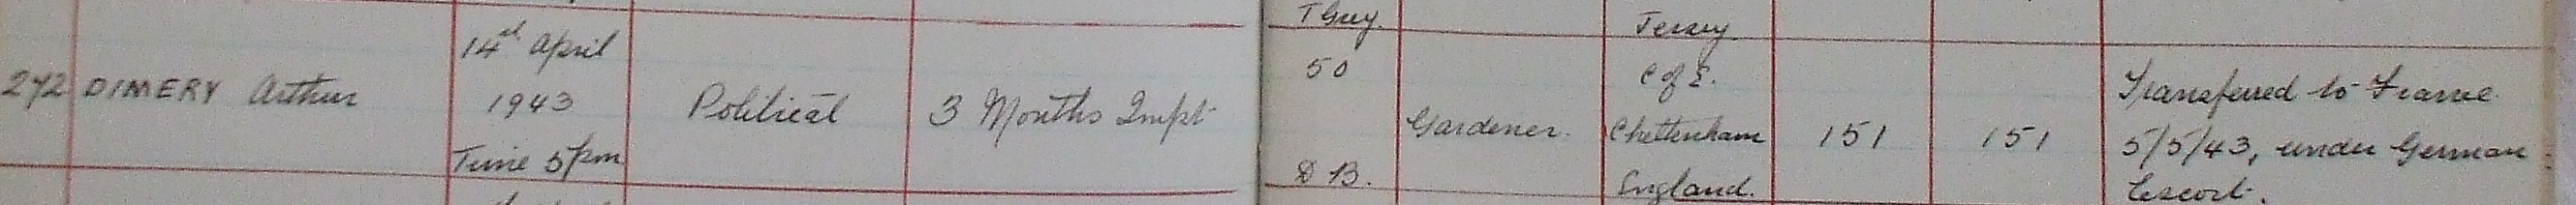 T Grey.
Jersey
272 DIMERY Arthur
14th April
1943
Time 5pm
Political
3 Months Impt
50
D B.
Gardener.
C of E.
Cheltenham
England.
151
151
Transferred to France
5/5/43, under German
Escort.